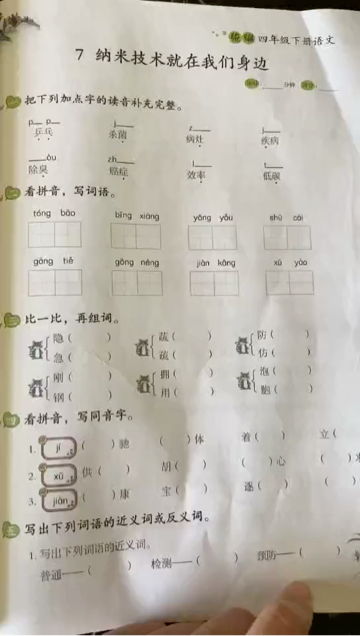 统编 四年级下册语文
7 纳米技术就在我们身边
把下列加点字的读音补充完整。
p__ p__ j__ z__ j__
乒乓 杀菌 病灶 疾病
__òu zh__ l__ t__
除臭 癌症 效率 低碳
二 看拼音，写词语。
tóng bāo bīng xiāng yōng yǒu shū cài
gāng tiě gōng néng jiàn kāng xū yào
比一比，再组词。
隐( ) 蔬( ) 防( )
急( ) 疏( ) 仿( )
刚( ) 拥( ) 泡( )
钢( ) 用( ) 胞( )
四 看拼音，写同音字。
1. jí ( )驰 ( )体 着( ) 立(
2. xū 供( ) 胡( ) ( )心 ( )
3. jiàn ( )康 宝( ) 逐( ) (
五 写出下列词语的近义词或反义词。
1. 写出下列词语的近义词。
普通——( ) 检测——( ) 预防——( )